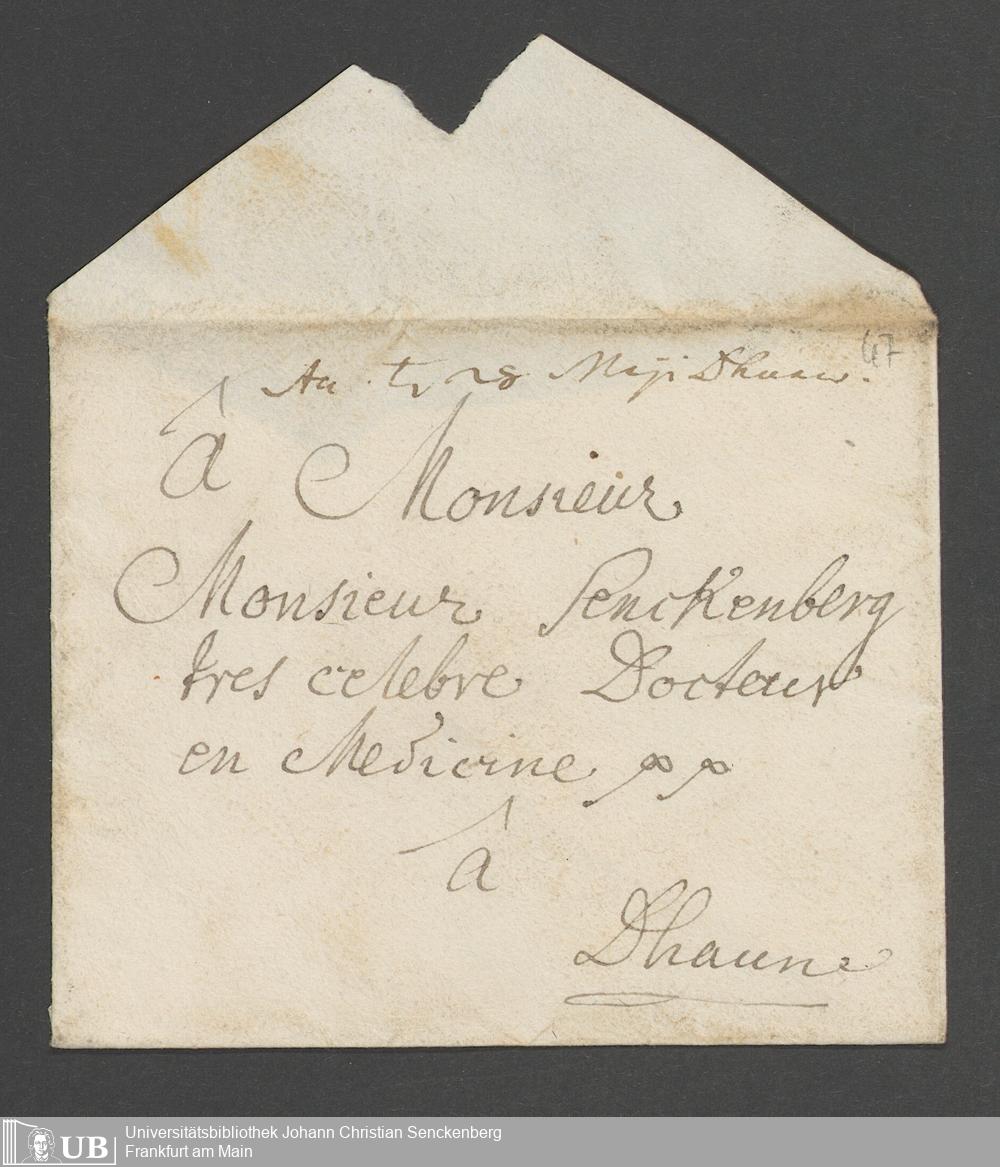 47
28 Maji Dhaun.
â Monsieur
Monsieur Senckenberg
tres celebre Docteur
en Medicine pp
â
Dhaune
UB Universitätsbibliothek Johann Christian Senckenberg
Frankfurt am Main